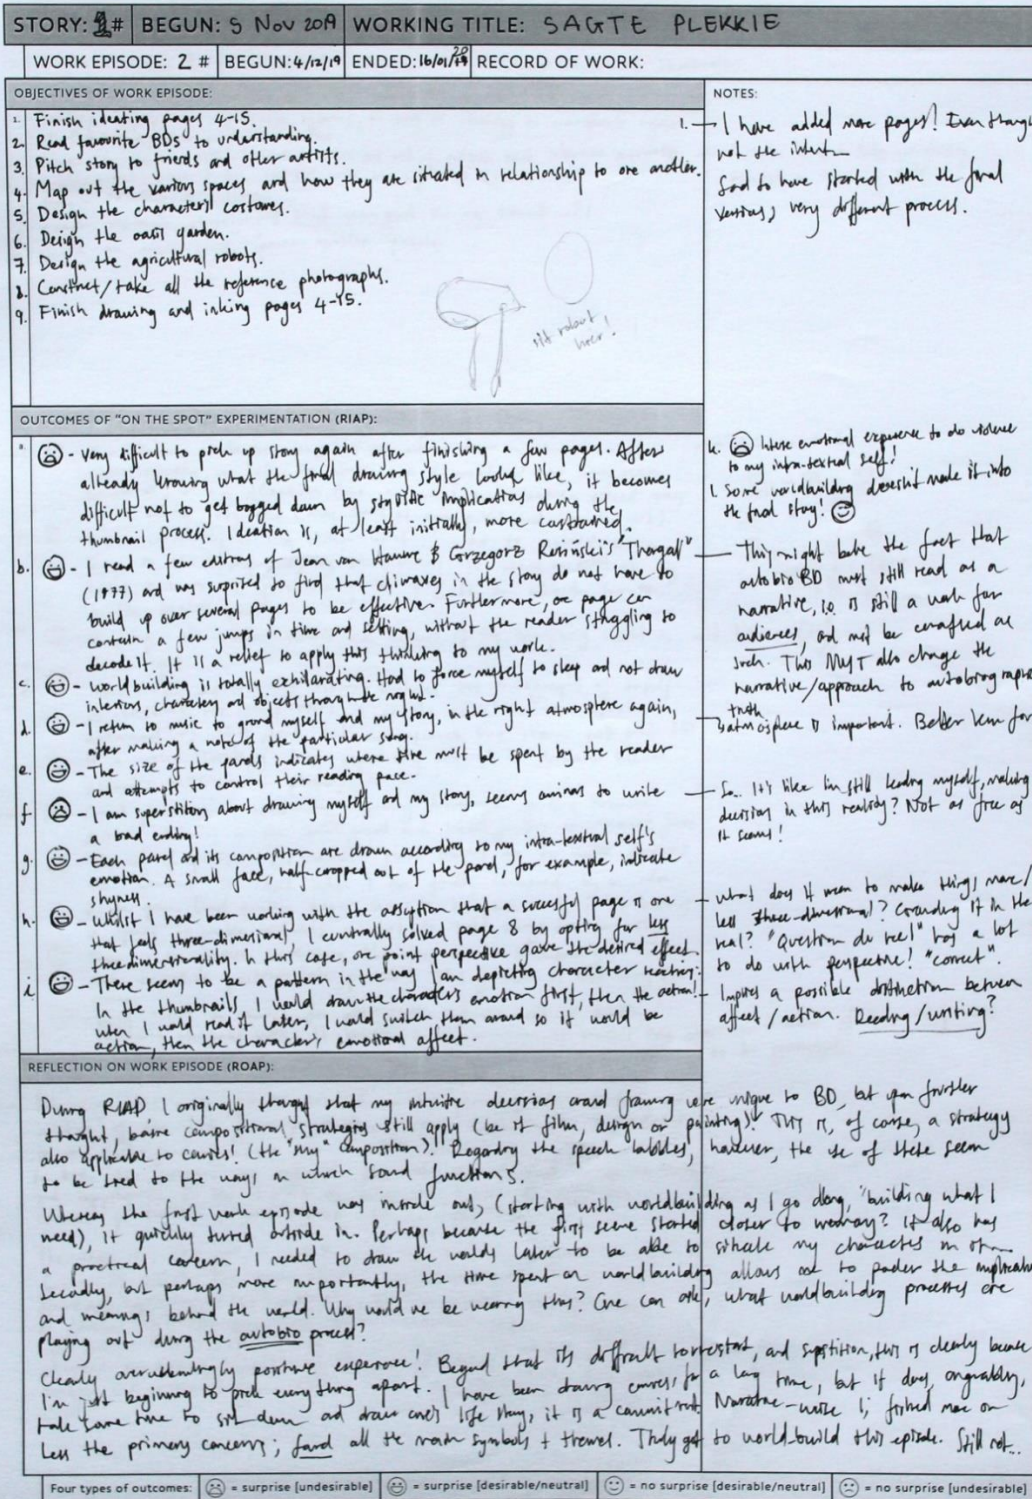 STORY: 1# BEGUN: 5 Nov 2019 WORKING TITLE: SAGTE PLEKKIE
WORK EPISODE: 2 # BEGUN: 4/12/19 ENDED: 16/01/20 RECORD OF WORK:
OBJECTIVES OF WORK EPISODE:
1. Finish ideating pages 4-15.
2. Read favourite BDs to understanding.
3. Pitch story to friends and other artists.
4. Map out the various spaces and how they are situated in relationship to one another.
5. Design the characters costumes.
6. Design the oasis garden.
7. Design the agricultural robots.
8. Construct/take all the reference photographs.
9. Finish drawing and inking pages 4-15.
robot
NOTES:
1. I have added more pages! Even though
not the intent
Sad to have started with the final
versions, very different process.
OUTCOMES OF "ON THE SPOT" EXPERIMENTATION (RIAP):
a. - very difficult to pick up story again after finishing a few pages. After
already knowing what the final drawing style looked like, it becomes
difficult not to get bogged down by stylistic implications during the
thumbnail process. Ideation is, at least initially, more constrained.
b. - I read a few editions of Jean van Hamme & Grzegorz Rosiński's "Thorgal"
(1977) and was surprised to find that climaxes in the story do not have to
build up over several pages to be effective. Furthermore, one page can
contain a few jumps in time and setting, without the reader struggling to
decode it. It is a relief to apply this thinking to my work.
c. - worldbuilding is totally exhilarating. Hard to force myself to sleep and not draw
interiors, characters and objects throughout the night.
d. - I return to music to ground myself and my story, in the right atmosphere again,
after making a note of the particular song.
e. - The size of the panels indicates where time must be spent by the reader
and attempts to control their reading pace.
f. - I am superstitious about drawing myself and my story, seems ominous to write
a bad ending!
g. - Each panel and its composition are drawn according to my intra-textual self's
emotion. A small face, half-cropped out of the panel, for example, indicate
shyness.
h. - Whilst I have been working with the assumption that a successful page is one
that feels three-dimensional, I eventually solved page 8 by opting for less
threedimensionality. In this case, one point perspective gave the desired effect.
i. - There seems to be a pattern in the way I am depicting character reactions:
In the thumbnails, I would draw the characters emotion first, then the action!
when I would read it later, I would switch them around so it would be
action, then the character's emotional affect.
k. Intense emotional experience to do violence
to my intra-textual self!
l. Some worldbuilding doesn't make it into
the final story!
This might be the fact that
autobio BD must still read as a
narrative, i.e. is still a work for
audiences, and must be crafted as
such. This MUST also change the
narrative/approach to autobiographical
truth
atmosphere is important. Better
So... It's like I'm still leading myself, making
decision in this reality? Not as free as
it seems!
what does it mean to make things more/
less three-dimensional? Grounding it in the
real? "Question du reel" has a lot
to do with perspective! "correct".
Implies a possible distinction between
affect/action. Reading/writing?
REFLECTION ON WORK EPISODE (ROAP):
During RIAP, I originally thought that my intuitive decisions around framing were unique to BD, but upon further
thought, basic compositional strategies still apply (be it film, design or painting). This is, of course, a strategy
also applicable to comics! (the "shy" composition). Regarding the speech bubbles, however, the use of these seem
to be tied to the ways in which sound functions.
Whereas the first work episode was inside out, (starting with worldbuilding as I go along, "building what I
need), it quickly turned outside in. Perhaps because the first scene started closer to memory? It also has
a practical concern, I needed to draw the worlds later to be able to situate my characters in
Secondly, but perhaps more importantly, the time spent on worldbuilding allows one to ponder the implications
and meanings behind the world. Why would we be wearing this? One can ask, what worldbuilding processes are
playing out during the autobio process?
Clearly overwhelmingly positive experience! Beyond that its difficult to restart, and superstition, this is clearly because
I'm just beginning to pick everything apart. I have been drawing comics for a long time, but it does, arguably,
take some time to sit down and draw one's life story, it is a commitment. Narrative-wise I finished more or
less the primary concerns; found all the main symbols + themes. Truly got to world-build this episode. Still not...
Four types of outcomes: = surprise [undesirable] = surprise [desirable/neutral] = no surprise [desirable/neutral] = no surprise [undesirable]